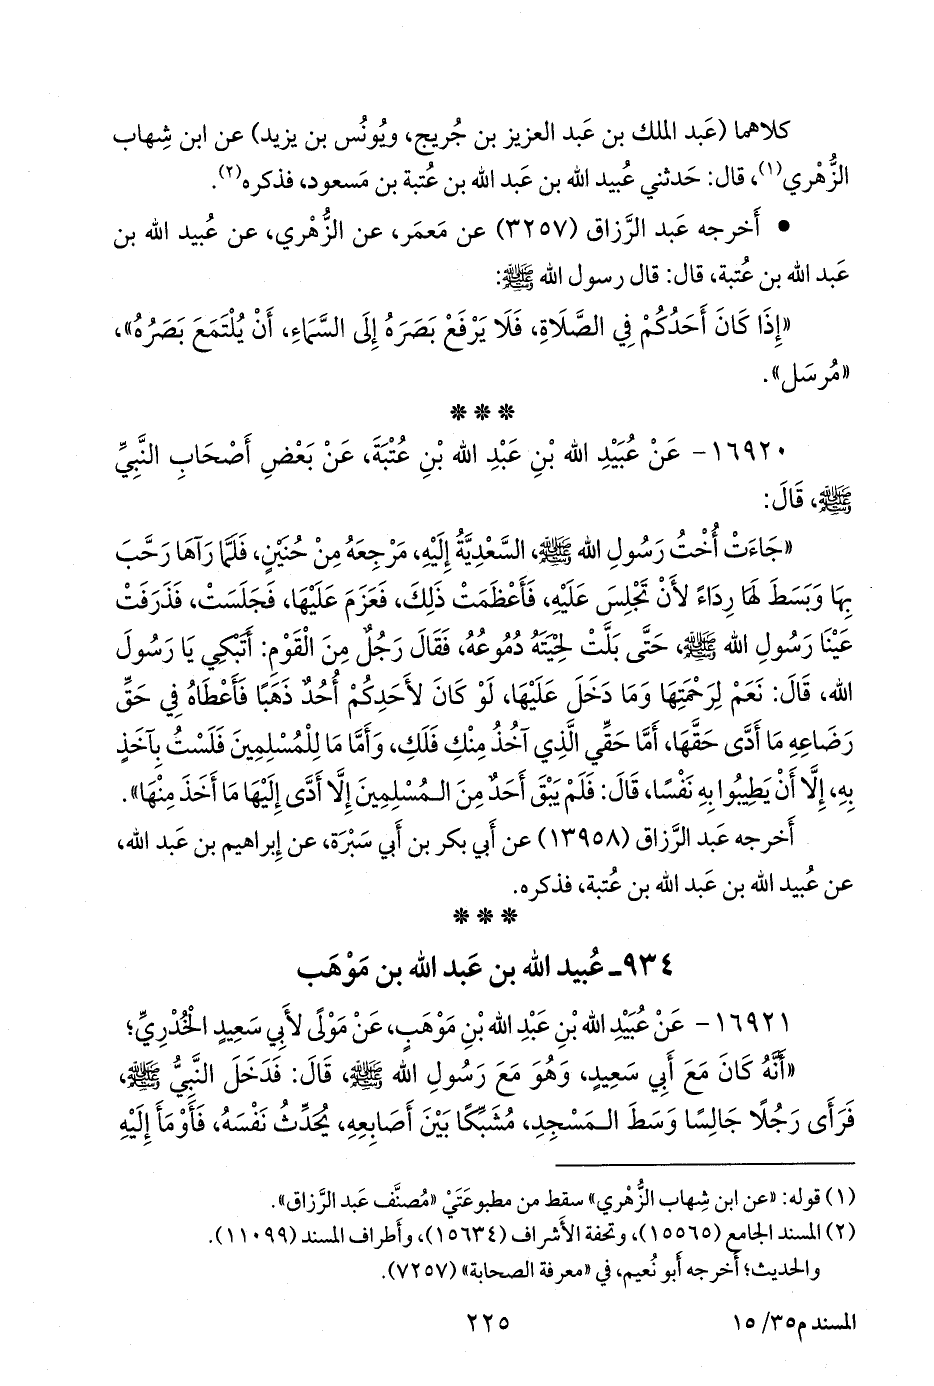 كلاهما (عَبد الملك بن عَبد العزيز بن جُريج، ويُونُس بن يزيد) عن ابن شِهاب
الزُّهْري(١)، قال: حَدثني عُبيد الله بن عَبد الله بن عُتبة بن مَسعود، فذكره(٢).
• أَخرجه عَبد الرَّزاق (٣٢٥٧) عن مَعمَر، عن الزُّهْري، عن عُبيد الله بن
عَبد الله بن عُتبة، قال: قال رسول الله ﷺ:
«إِذَا كَانَ أَحَدُكُمْ فِي الصَّلَاةِ، فَلَا يَرْفَعْ بَصَرَهُ إِلَى السَّمَاءِ، أَنْ يُلْتَمَعَ بَصَرُهُ»،
«مُرسَل».
***
١٦٩٢٠- عَنْ عُبَيْدِ الله بْنِ عَبْدِ الله بْنِ عُتْبَةَ، عَنْ بَعْضِ أَصْحَابِ النَّبِيِّ
ﷺ، قَالَ:
«جَاءَتْ أُخْتُ رَسُولِ الله ﷺ، السَّعْدِيَّةُ إِلَيْهِ، مَرْجِعَهُ مِنْ حُنَيْنٍ، فَلَمَّا رَآهَا رَحَّبَ
بِهَا وَبَسَطَ لَهَا رِدَاءً لأَنْ تَجْلِسَ عَلَيْهِ، فَأَعْظَمَتْ ذَلِكَ، فَعَزَمَ عَلَيْهَا، فَجَلَسَتْ، فَذَرَفَتْ
عَيْنَا رَسُولِ الله ﷺ، حَتَّى بَلَّتْ لِحْيَتَهُ دُمُوعُهُ، فَقَالَ رَجُلٌ مِنَ الْقَوْمِ: أَتَبْكِي يَا رَسُولَ
الله، قَالَ: نَعَمْ لِرَحْمَتِهَا وَمَا دَخَلَ عَلَيْهَا، لَوْ كَانَ لأَحَدِكُمْ أُحُدٌ ذَهَبًا فَأَعْطَاهُ فِي حَقِّ
رَضَاعِهِ مَا أَدَّى حَقَّهَا، أَمَّا حَقِّي الَّذِي آخُذُ مِنْكِ فَلَكِ، وَأَمَّا مَا لِلْمُسْلِمِينَ فَلَسْتُ بِآخِذٍ
بِهِ، إِلَّا أَنْ يَطِيبُوا بِهِ نَفْسًا، قَالَ: فَلَمْ يَبْقَ أَحَدٌ مِنَ الـمُسْلِمِينَ إِلَّا أَدَّى إِلَيْهَا مَا أَخَذَ مِنْهَا».
أَخرجه عَبد الرَّزاق (١٣٩٥٨) عن أَبي بكر بن أَبي سَبْرَة، عن إِبراهيم بن عَبد الله،
عن عُبيد الله بن عَبد الله بن عُتبة، فذكره.
***
٩٣٤ـ عُبيد الله بن عَبد الله بن مَوْهَب
١٦٩٢١- عَنْ عُبَيْدِ الله بْنِ عَبْدِ الله بْنِ مَوْهَبٍ، عَنْ مَوْلًى لأَبِي سَعِيدٍ الْخُدْرِيِّ؛
«أَنَّهُ كَانَ مَعَ أَبِي سَعِيدٍ، وَهُوَ مَعَ رَسُولِ الله ﷺ، قَالَ: فَدَخَلَ النَّبِيُّ ﷺ،
فَرَأَى رَجُلًا جَالِسًا وَسَطَ الـمَسْجِدِ، مُشَبِّكًا بَيْنَ أَصَابِعِهِ، يُحَدِّثُ نَفْسَهُ، فَأَوْمَأَ إِلَيْهِ
(١) قوله: «عن ابن شِهاب الزُّهْري» سقط من مطبوعَتَيْ «مُصنَّف عَبد الرَّزاق».
(٢) المسند الجامع (١٥٥٦٥)، وتحفة الأشراف (١٥٦٣٤)، وأطراف المسند (١١٠٩٩).
والحديث؛ أخرجه أبو نُعيم، في «معرفة الصحابة» (٧٢٥٧).
المسند م٣٥/ ١٥
٢٢٥